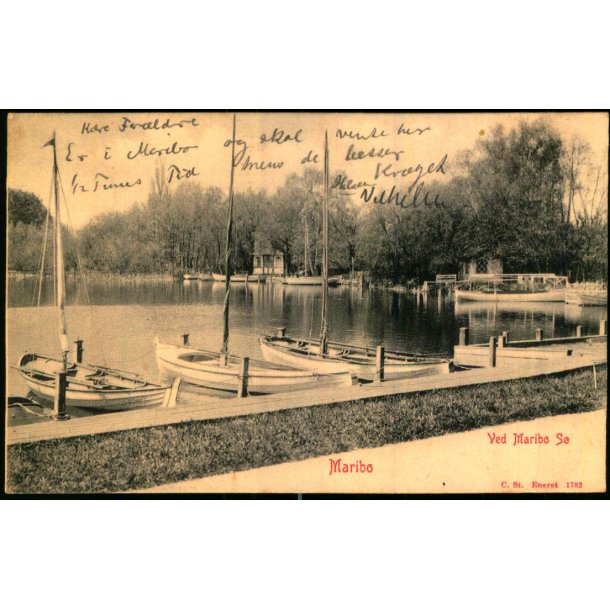 Kære Forældre
Er i Maribo og skal vente her
1/2 Times Tid mens de
Vilhelm
Ved Maribo Sø
Maribo
C. St. Eneret 1782